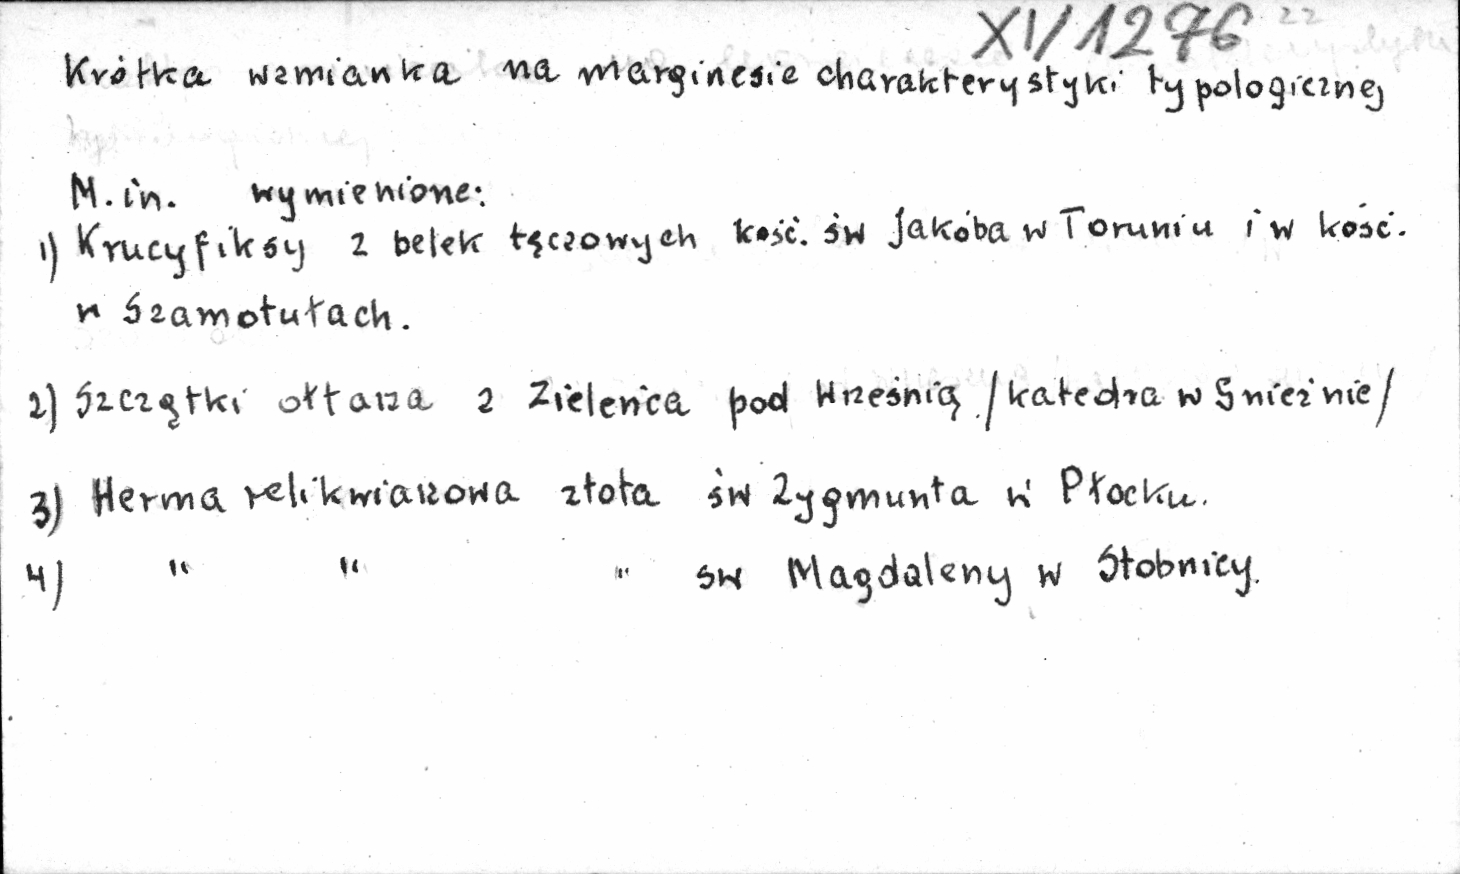 XI/1276
Krótka wzmianka na marginesie charakterystyki typologicznej
M.in. wymienione:
1) Krucyfiksy z belek tęczowych kość. św Jakóba w Toruniu i w kość.
w Szamotułach.
2) Szczątki ołtarza z Zieleńca pod Wrześnią /katedra w Gnieźnie/
3) Herma relikwiarzowa złota św Zygmunta w Płocku.
4) " " " św Magdaleny w Stobnicy.